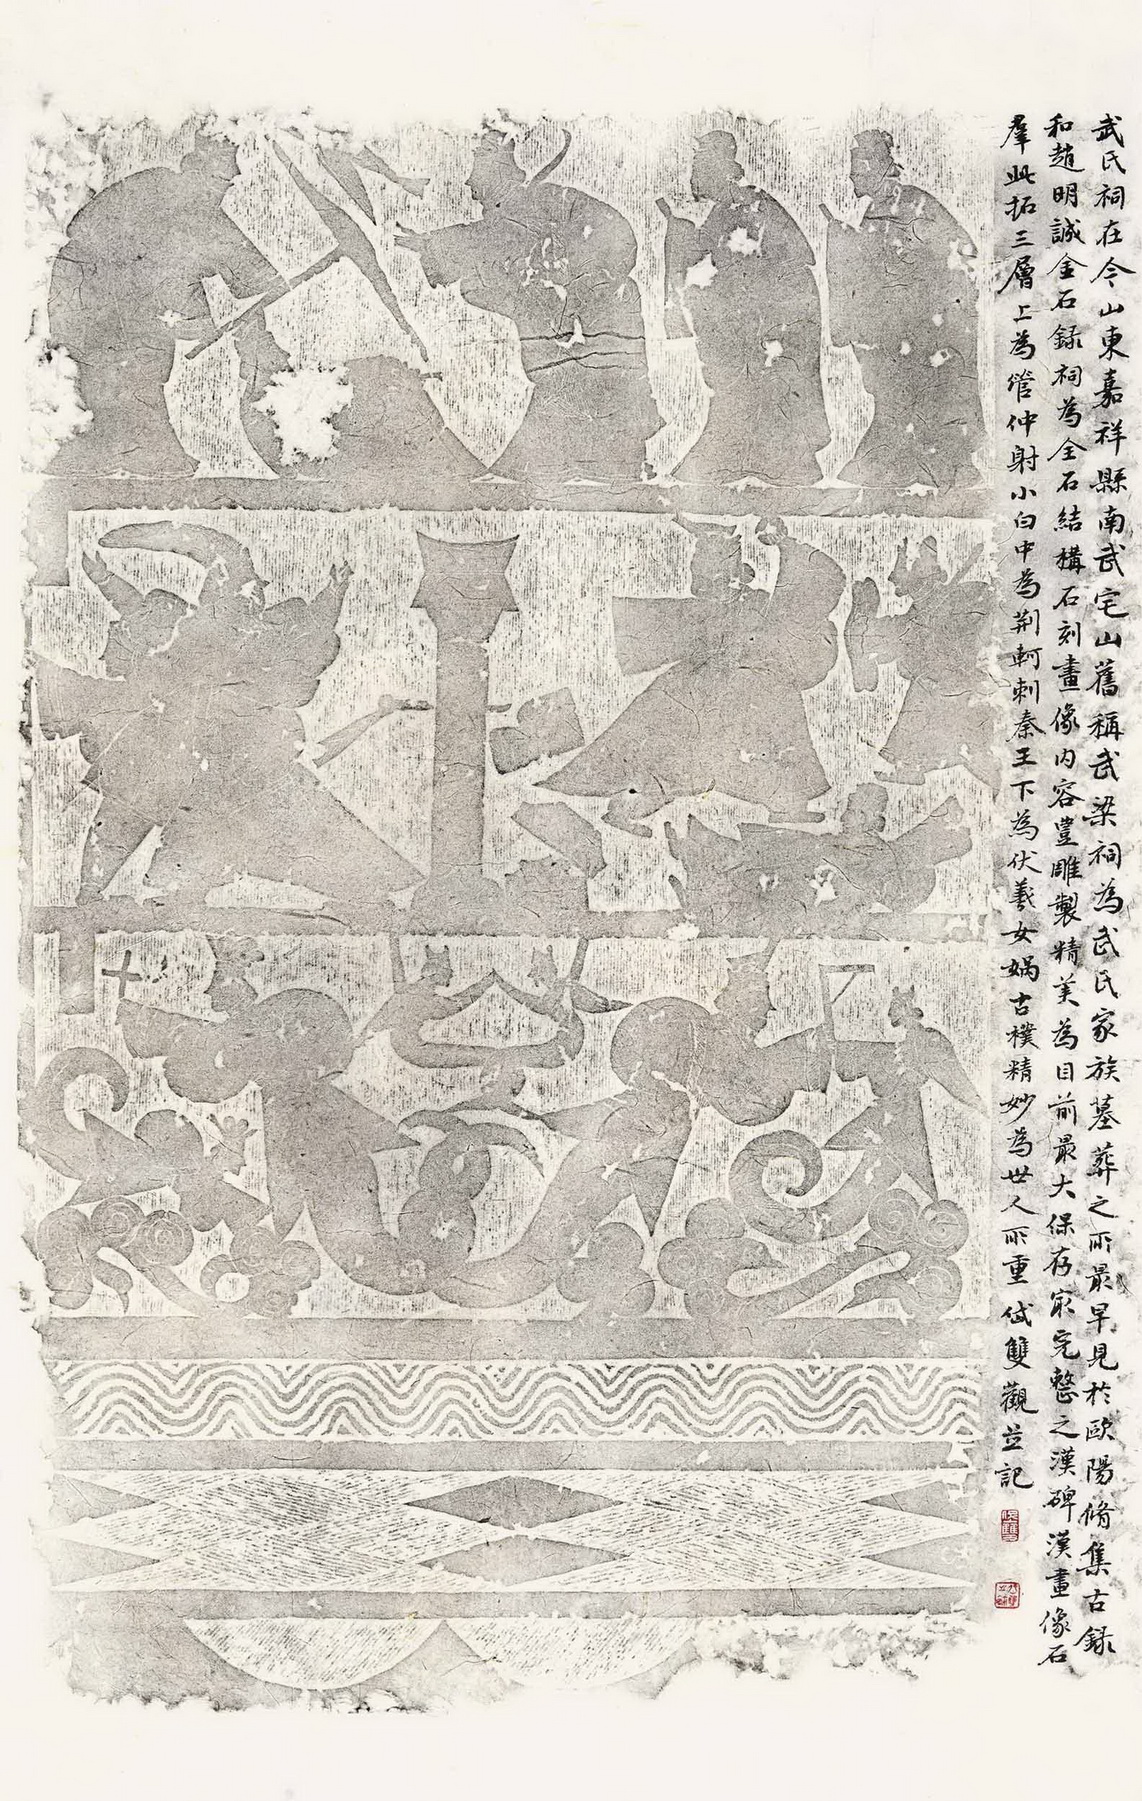 武氏祠在今山東嘉祥縣南武宅山舊稱武梁祠為武氏家族墓葬之所最早見於歐陽脩集古錄
和趙明誠金石錄祠為全石結構石刻畫像內容豐雕製精美為目前最大保存最完整之漢碑漢畫像石
羣此拓三層上為管仲射小白中為荊軻刺秦王下為伏羲女媧古樸精妙為世人所重 雙觀並記